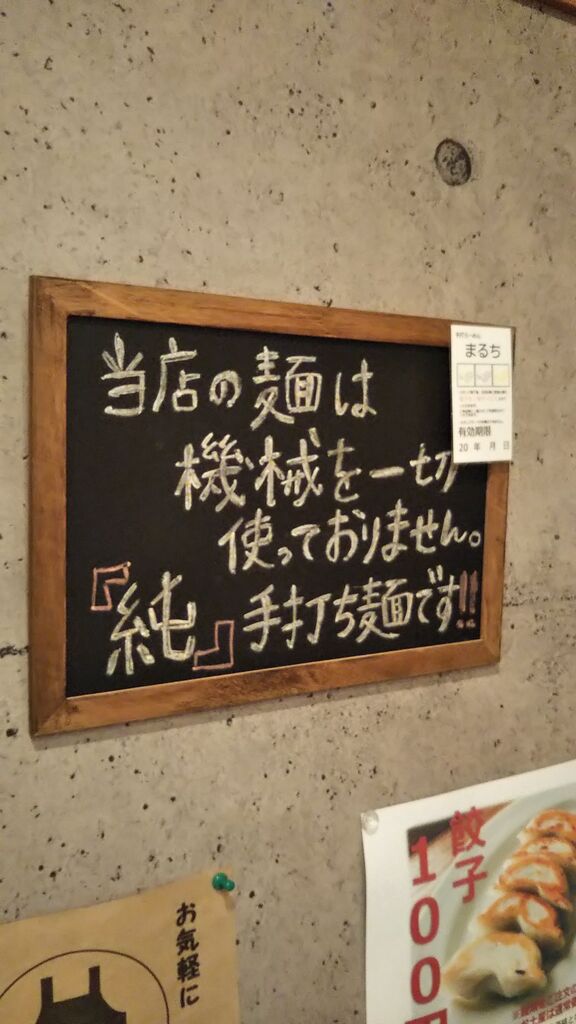 当店の麺は
機械を一切
使っておりません。
『純』手打ち麺です!!
まるち
有効期限
20 年 月 日
餃子
100円
お気軽に